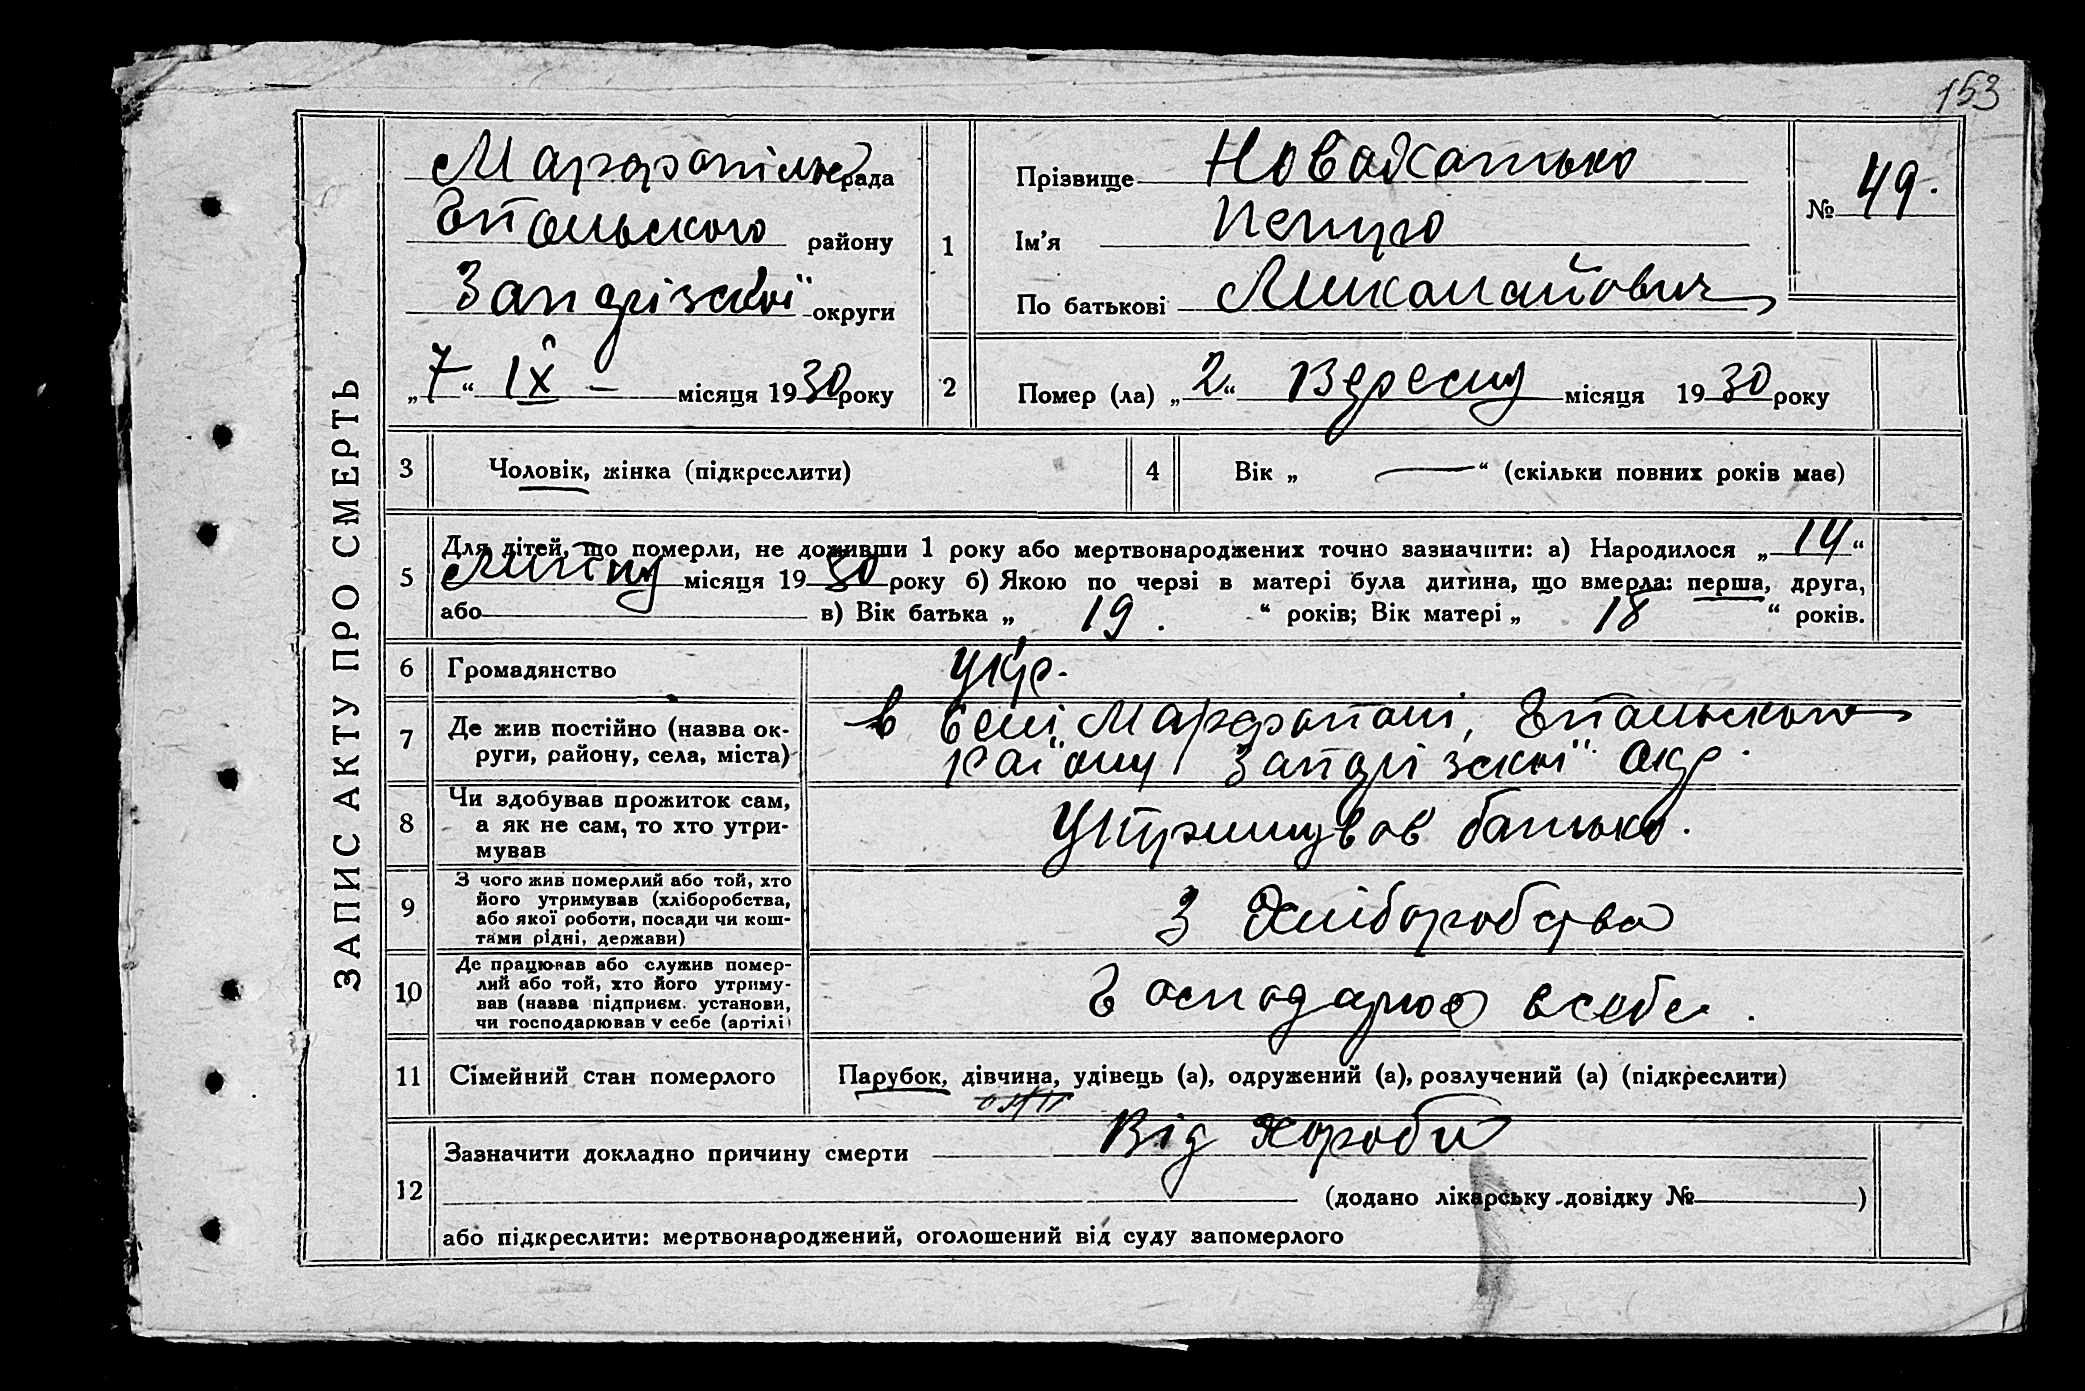 153
ЗАПИС АКТУ ПРО СМЕРТЬ
Марфопільс рада
Гпільського району
Запорізскої округи
„7“ IX – місяця 1930 року
1
Прізвище Новохатько
Ім'я Петро
По батькові Миколайович
№ 49.
2
Помер (ла) „2“ Вересня місяця 1930 року
3 Чоловік, жінка (підкреслити)
4 Вік „ — “ (скільки повних років мав)
5
Для дітей, що померли, не доживши 1 року або мертвонароджених точно зазначити: а) Народилося „14“
Липня місяця 1930 року б) Якою по черзі в матері була дитина, що вмерла: перша, друга,
або в) Вік батька „ 19. “ років; Вік матері „ 18 “ років.
6 Громадянство укр.
7 Де жив постійно (назва ок-
руги, району, села, міста)
в селі Марфополі, Гпільського
району Запорізскої окр.
8 Чи здобував прожиток сам,
а як не сам, то хто утри-
мував
Утримував батько.
9 З чого жив померлий або той, хто
його утримував (хліборобства,
або якої роботи, посади чи кош-
тами рідні, держави)
З Хліборобства
10 Де працював або служив помер-
лий або той, хто його утриму-
вав (назва підприєм. установи,
чи господарював у себе (артілі)
Господарює в себе.
11 Сімейний стан померлого Парубок, дівчина, удівець (а), одружений (а), розлучений (а) (підкреслити)
12
Зазначити докладно причину смерти Від хороби
(додано лікарську довідку № )
або підкреслити: мертвонароджений, оголошений від суду запомерлого